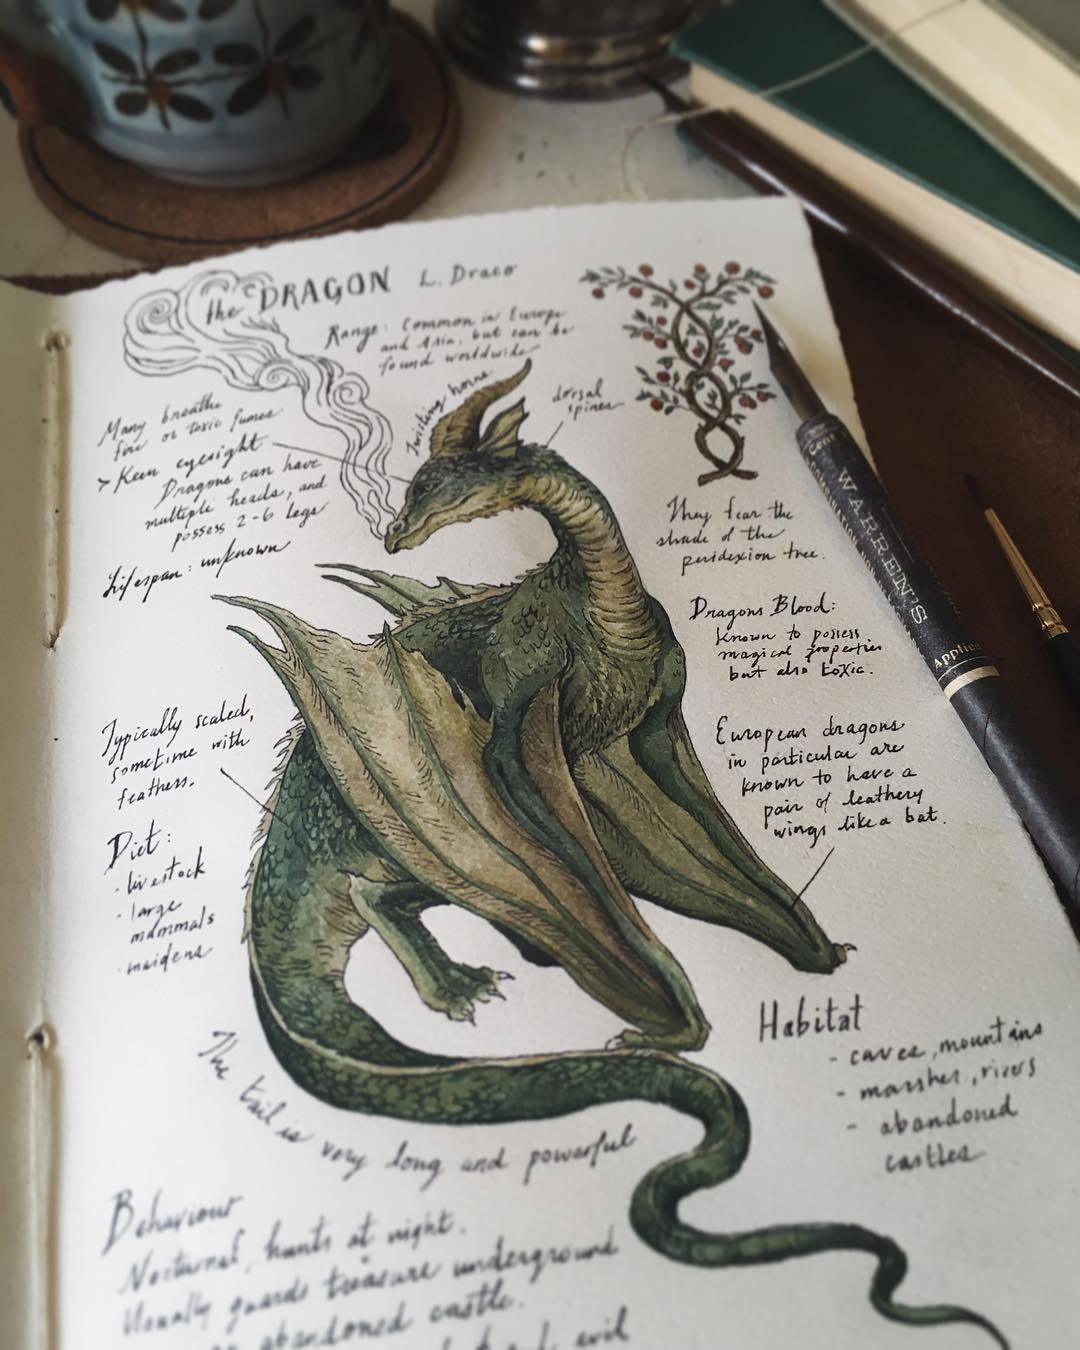 the DRAGON L. Draco
Range: Common in Europe
and Asia, but can be
found worldwide
Twisting horns
dorsal
spines
Many breathe
fire or toxic fumes
> Keen eyesight
Dragons can have
multiple heads, and
possess 2-6 legs
Lifespan: unknown
They fear the
shade of the
peridexion tree.
Dragons Blood:
known to possess
magical properties
but also toxic.
Typically scaled,
sometime with
feathers.
European dragons
in particular are
known to have a
pair of leathery
wings like a bat.
Diet:
- livestock
- large
mammals
- maidens
Habitat
- caves, mountains
- marshes, rivers
- abandoned
castles
The tail is very long and powerful
Behaviour
Nocturnal, hunts at night.
Usually guards treasure underground
abandoned castle.
evil
WARREN'S